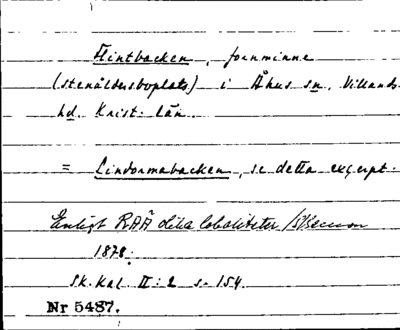 Flintbacken, fornminne
(stenåldersboplats) i Åhus sn, Villands
hd. Krist. län.
= Lindormabacken, se detta excerpt.
Enligt RAÄ olika lokaliteter
1878.
Sk. Kal. II: 2 s. 154
Nr 5487.